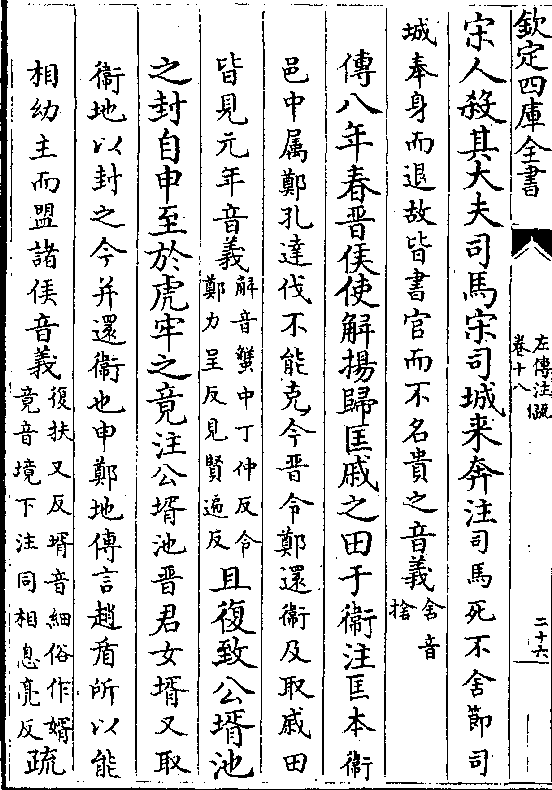 欽定四庫全書
左傳注疏
卷十八
二十六
宋人殺其大夫司馬宋司城来奔注司馬死不舍節司
城奉身而退故皆書官而不名貴之音義舍音
捨
傳八年春晉侯使解揚歸匡戚之田于衞注匡本衞
邑中属鄭孔達伐不能克今晉令鄭還衞及取戚田
皆見元年音義解音蟹中丁仲反令
鄭力呈反見賢遍反且復致公壻池
之封自申至於虎牢之竟注公壻池晉君女壻又取
衞地以封之今并還衞也申鄭地傳言趙盾所以能
相幼主而盟諸侯音義復扶又反壻音細俗作婿
竟音境下注同相息亮反疏